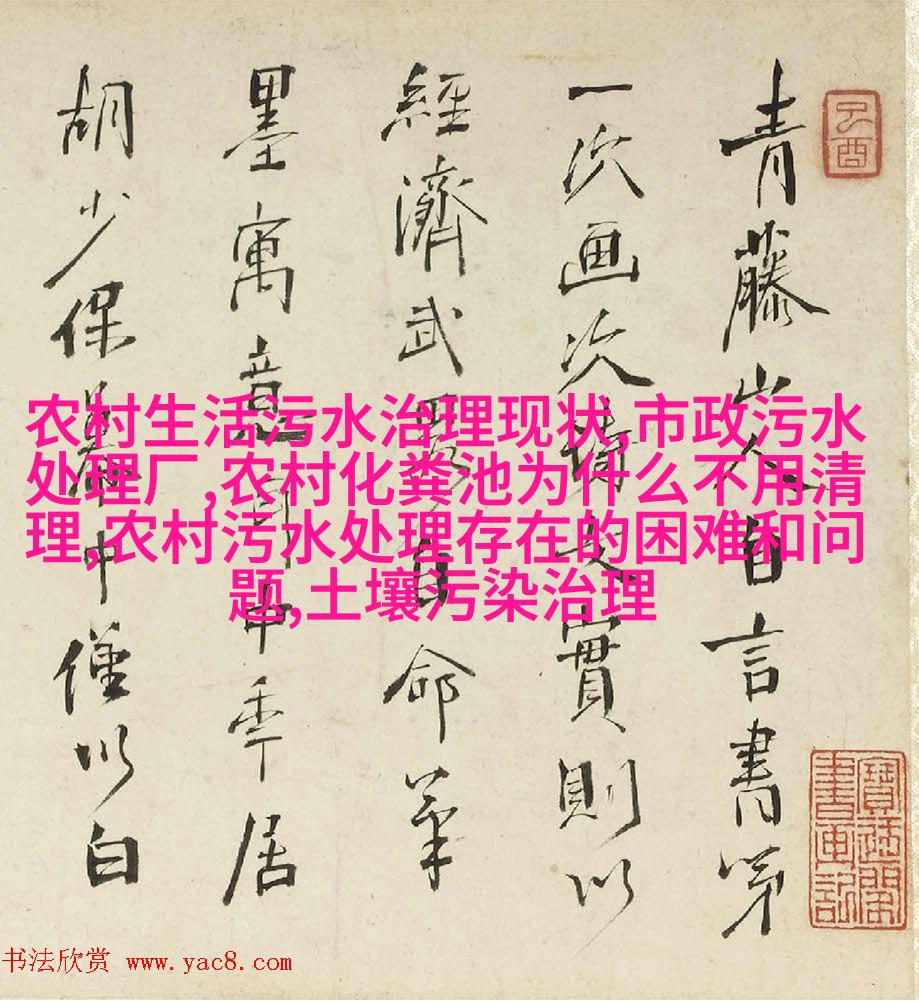 青藤山人自言書第
一次画次文實則以
經濟武略自命筆
墨寓意耳中年居
胡少保幕中僅以白
己酉
寶迂閣
書畫記
农村生活污水治理现状,市政污水
处理厂,农村化粪池为什么不用清
理,农村污水处理存在的困难和问
题,土壤污染治理
书法欣赏 www.yac8.com